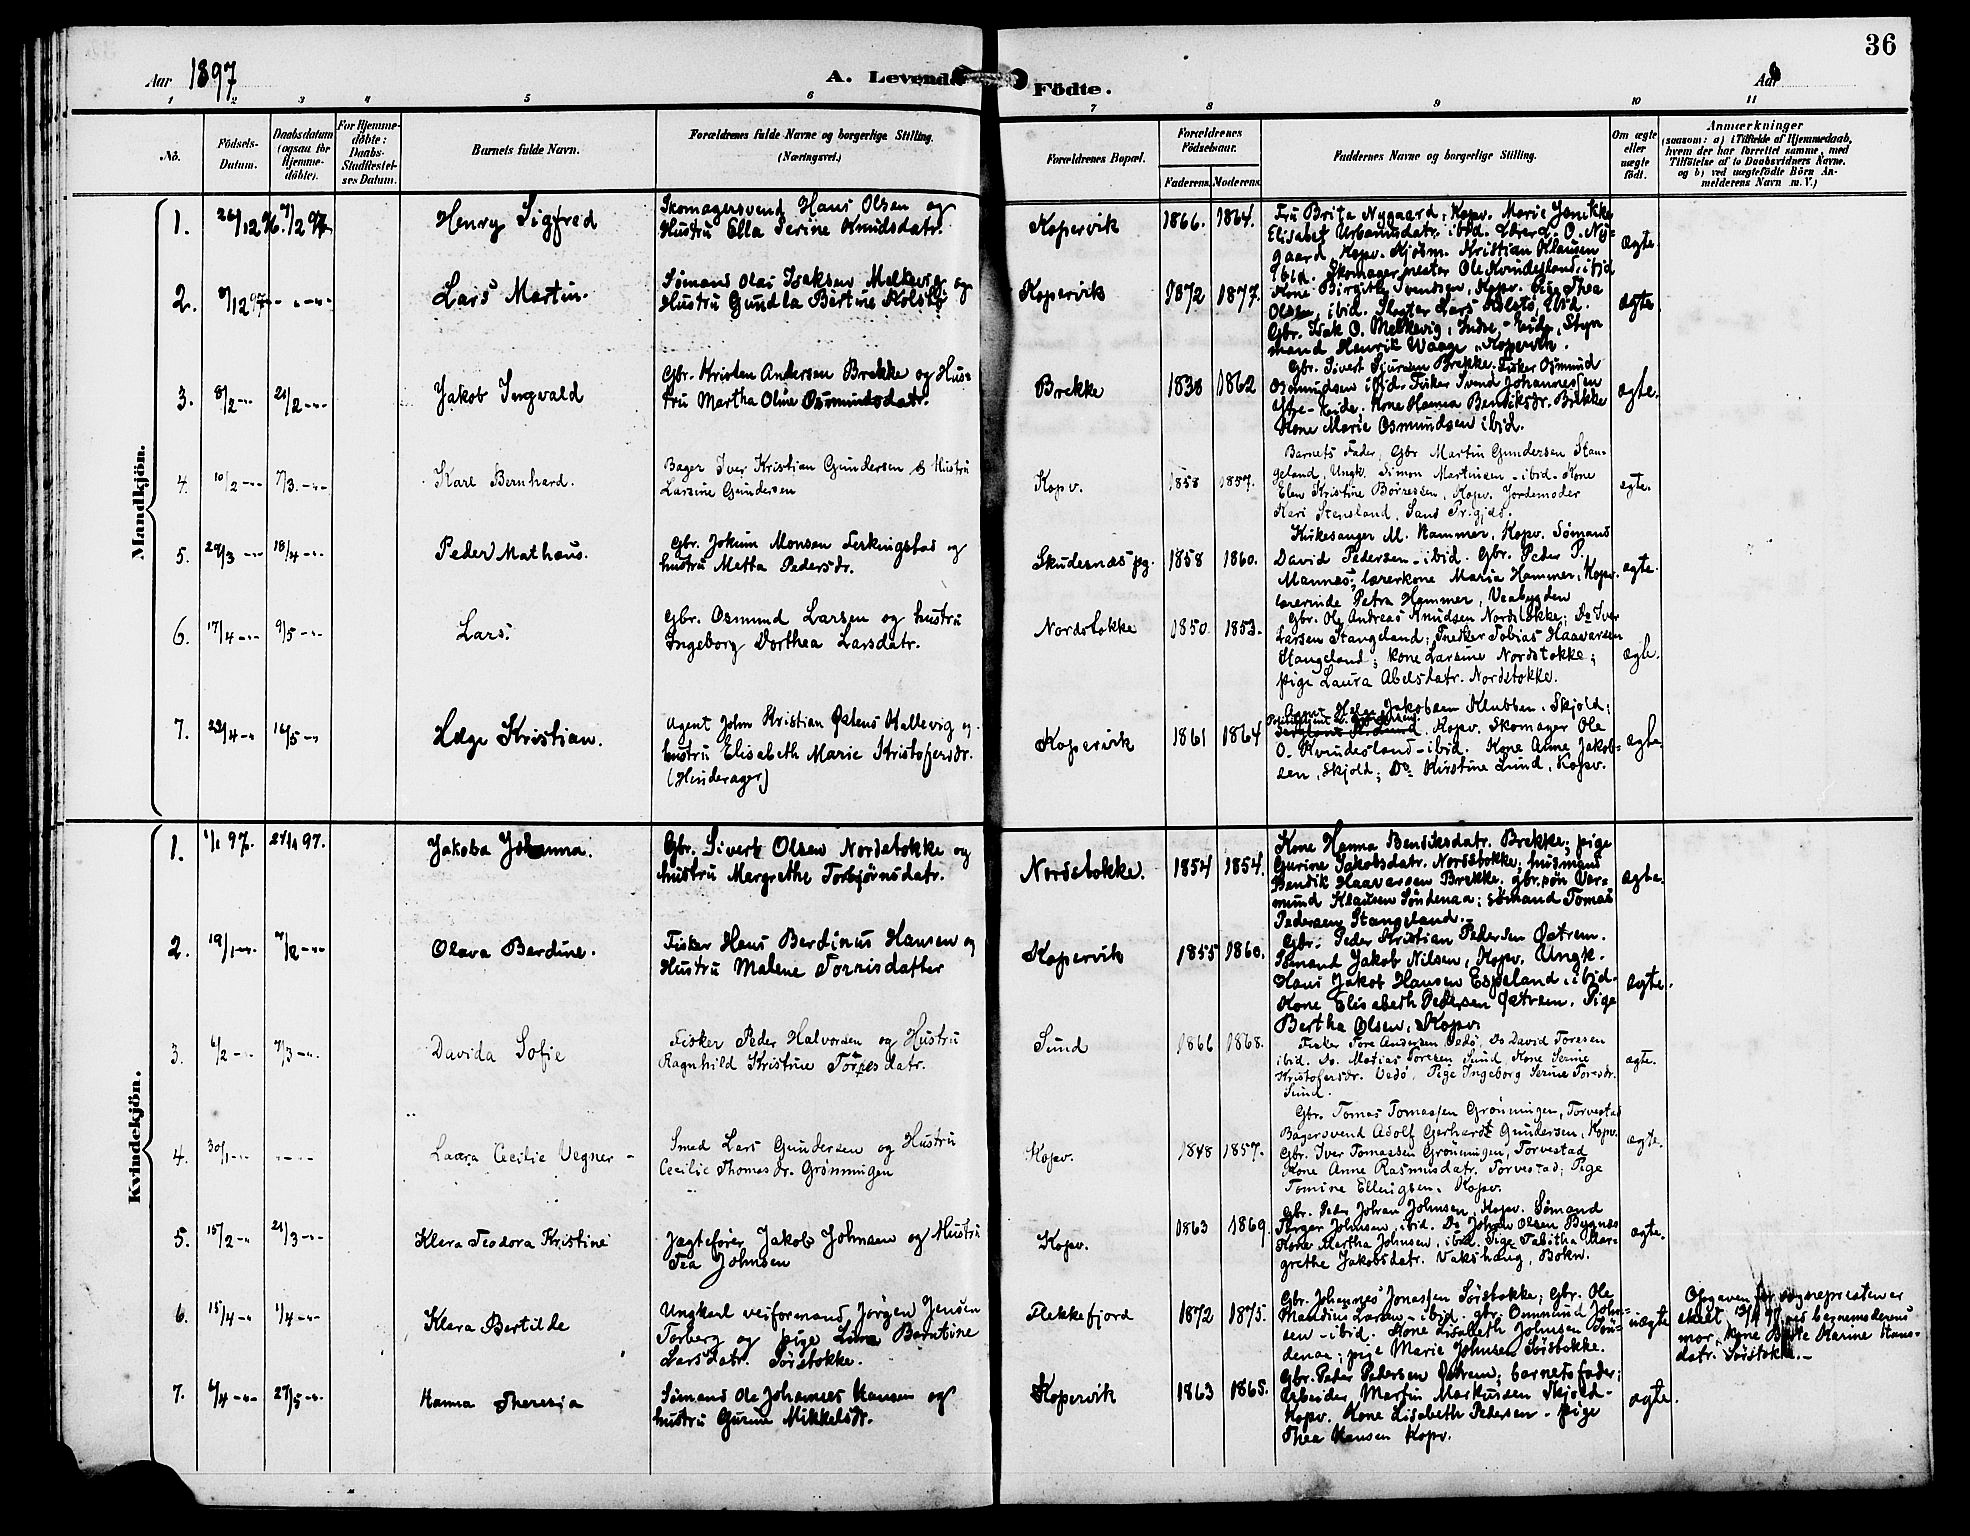 36
Aar 1897
A. Levende Födte.
Aar
1 2 3 4 5 6 7 8 9 10 11
No.
Födsels-Datum.
Daabsdatum (ogsaa for Hjemme-döbte).
For Hjemme-döbte: Daabs-Stadfæstel-ses Datum.
Barnets fulde Navn.
Forældrenes fulde Navne og borgerlige Stilling. (Næringsvei.)
Forældrenes Bopæl.
Forældrenes Födselsaar.
Faderens. Moderens.
Faddernes Navne og borgerlige Stilling.
Om ægte eller uægte födt.
Anmærkninger
(saasom: a) i Tilfælde af Hjemmedaab,
hvem der har forrettet samme, med
Tilföielse af to Daabsvidners Navne.
og b) ved uægtefödte Börn An-
melderens Navn m. V.)
Mandkjön.
1. 26/12 96. 7/2 97
Henry Sigfred
Skomagersvend Hans Olsen og
Hustru Ella Serine Knudsdatr.
Kopervik 1866. 1864.
Fru Brita Nygaard, Kopv. Marie Jenikke
Elisabet Urbanusdatr. ibid. Lærer O. Ny-
gaard Kopv. Kjøbm. Kristian Klausen
ibid. Skomagermester Ole Kvindesland, ibid
ægte.
2.
Lars Martin.
Sømand Olai Isaksen Melkevig og
Hustru Gundla Bertine Kolstø
Kopervik 1872 1877.
Kone Birgitte Svendsen, Kopv. Pige Thea
Olsen, ibid. Lars Kolstø, ibid.
Gbr. Isak O. Melkevig, Indre-Eide, Styr
mand Henrik Waage, Kopervik.
ægte.
3. 8/2 21/2
Jakob Ingvald
Gbr. Kristen Andersen Brekke og Hus-
tru Martha Oline Osmundsdatr.
Brekke 1838 1862
Gbr. Sivert Sjursen Brekke. Fisker Osmund
Osmundsen ibid. Fisker Svend Johannessen
Ytre-Eide. Kone Hanna Bendiksdr. Brekke
Kone Marie Osmundsen ibid.
ægte.
4. 10/2 7/3
Karl Bernhard.
Bager Iver Kristian Gundersen & Hustru
Larsine Gundersen
Kopv. 1858 1857.
Barnets Fader, Gbr Martin Gundersen Stan-
geland, Ungk. Simon Martinsen - ibid. Kone
Elen Kristine Børresen, Kopv. Jordemoder
Kari Stensland, Sand Pr.gjld.
ægte.
5. 29/3 18/4
Peder Mathæus.
Gbr. Jokum Monsen Ferkingstad og
hustru Metta Pedersdr.
Skudesnæs pg. 1858 1860.
Kirkesanger M. Hammer, Kopv. Sømand
David Pedersen - ibid. Gbr. Peder P.
Mannes, lærerkone Maria Hammer, Kopv.
lærerinde Petra Hammer, Veabygden
ægte.
6. 17/4 9/5
Lars.
Gbr. Osmund Larsen og hustru
Ingeborg Dorthea Larsdatr.
Nordstokke 1850. 1853.
Gbr. Ole Andreas Knudsen Nordstokke; Do Iver
Larsen Stangeland; Snekker Tobias Haavarsen
Stangeland; kone Larsine Nordstokke;
pige Laura Abelsdatr. Nordstokke.
ægte.
7. 22/4 16/5
Helge Kristian.
Agent John Kristian Østens Kallevig og
hustru Elisabeth Marie Kristofersdr.
(Hinderager)
Kopervik 1861 1864
Jakobsen Klubben, Skjold;
Kopv. Skomager Ole
O. Kvindesland - ibid. Kone Anne Jakob-
sen, Skjold; Do Kirstine Lund, Kopv.
ægte
Kvindekjön.
1. 1/1 97.
Jakoba Johanna.
Gbr. Sivert Olsen Nordstokke og
hustru Margrethe Torbjørnsdatr.
Nordstokke. 1854 1854.
Kone Hanna Bendiksdatr. Brekke; pige
Gurine Jakobsdatr. Nordstokke; husmand
Bendik Haavarsen Brekke. gbr.søn Ver-
mund Klausen Søndenaa; sømand Tomas
Pedersen Stangeland.
ægte.
2. 19/1 7/2
Olava Berdine.
Fisker Hans Bertinus Hansen og
Hustru Malene Tørrisdatter
Kopervik 1855 1860.
Gbr. Peder Kristian Pedersen Østrem.
Sømand Jakob Nilsen, Kopv. Ungk.
Hans Jakob Hansen Espeland, ibid.
Kone Elisabeth Pedersen Østrem. Pige
Bertha Olsen, Kopv.
ægte.
3. 6/2 7/3
Davida Sofie
Fisker Peder Halvorsen og Hustru
Ragnhild Kristine Torresdatr.
Sund 1866 1868.
Fisker Tore Andersen Vedø, Do David Toresen
ibid. Do. Matias Toresen Sund Kone Serine
Kristofersdr. Vedø, Pige Ingeborg Serine Toresdr.
Sund.
ægte.
4. 30/1
Laura Cecilie Vegner
Smed Lars Gundersen og Hustru
Cecilie Thomesdr. Grønningen
Kopv. 1848 1857.
Gbr. Tomas Tomassen Grønningen, Torvestad
Bagersvend Adolf Gerhardt Gundersen, Kopv.
Gbr. Iver Tomassen Grønningen, Torvestad
Kone Anne Rasmusdatr. Torvestad; Pige
Tomine Ellingsen. Kopv.
ægte.
5. 15/2 21/3
Klara Teodora Kristine
Jægtefører Jakob Johnsen og Hustru
Tea Johnsen
Kopv. 1863 1869
Gbr. Peder Johan Johnsen, Kopv. Sømand
Børger Johnsen, ibid. Do Johan Olsen Bygnes
Kone Martha Johnsen, ibid. Pige Tabitha Mar-
grethe Jakobsdatr. Vakshaug, Bokn.
ægte.
6. 15/4
Klara Bertilde
Ungkarl veiformand Jörgen Jensen
Torberg og pige Lina Berntine
Larsdatr. Sørstokke.
Flekkefjord 1872 1875.
Gbr. Johannes Jonassen Sørstokke; Gbr. Ole
Mandius Larsen - ibid. gbr. Ommund John-
sen - ibid. Kone Lisabeth Johnsen Søn-
denaa; pige Marie Johnsen Sørstokke.
uægte
Opgaven for sognepresten er
skeet ved barnemoderens
mor, kone Berte Marine Hans-
datr. Sørstokke.
7. 27/5
Hanna Theresia
Sømand Ole Johannes Hansen og
hustru Gurine Mikkelsdr.
Kopervik 1863 1865.
Gbr. Peder Pedersen Østrem; barnets fader;
Arbeider Martin Markussen Skjold-
Kopv. Kone Lisabeth Pedersen - pige
Thea Hansen Kopv.
ægte.